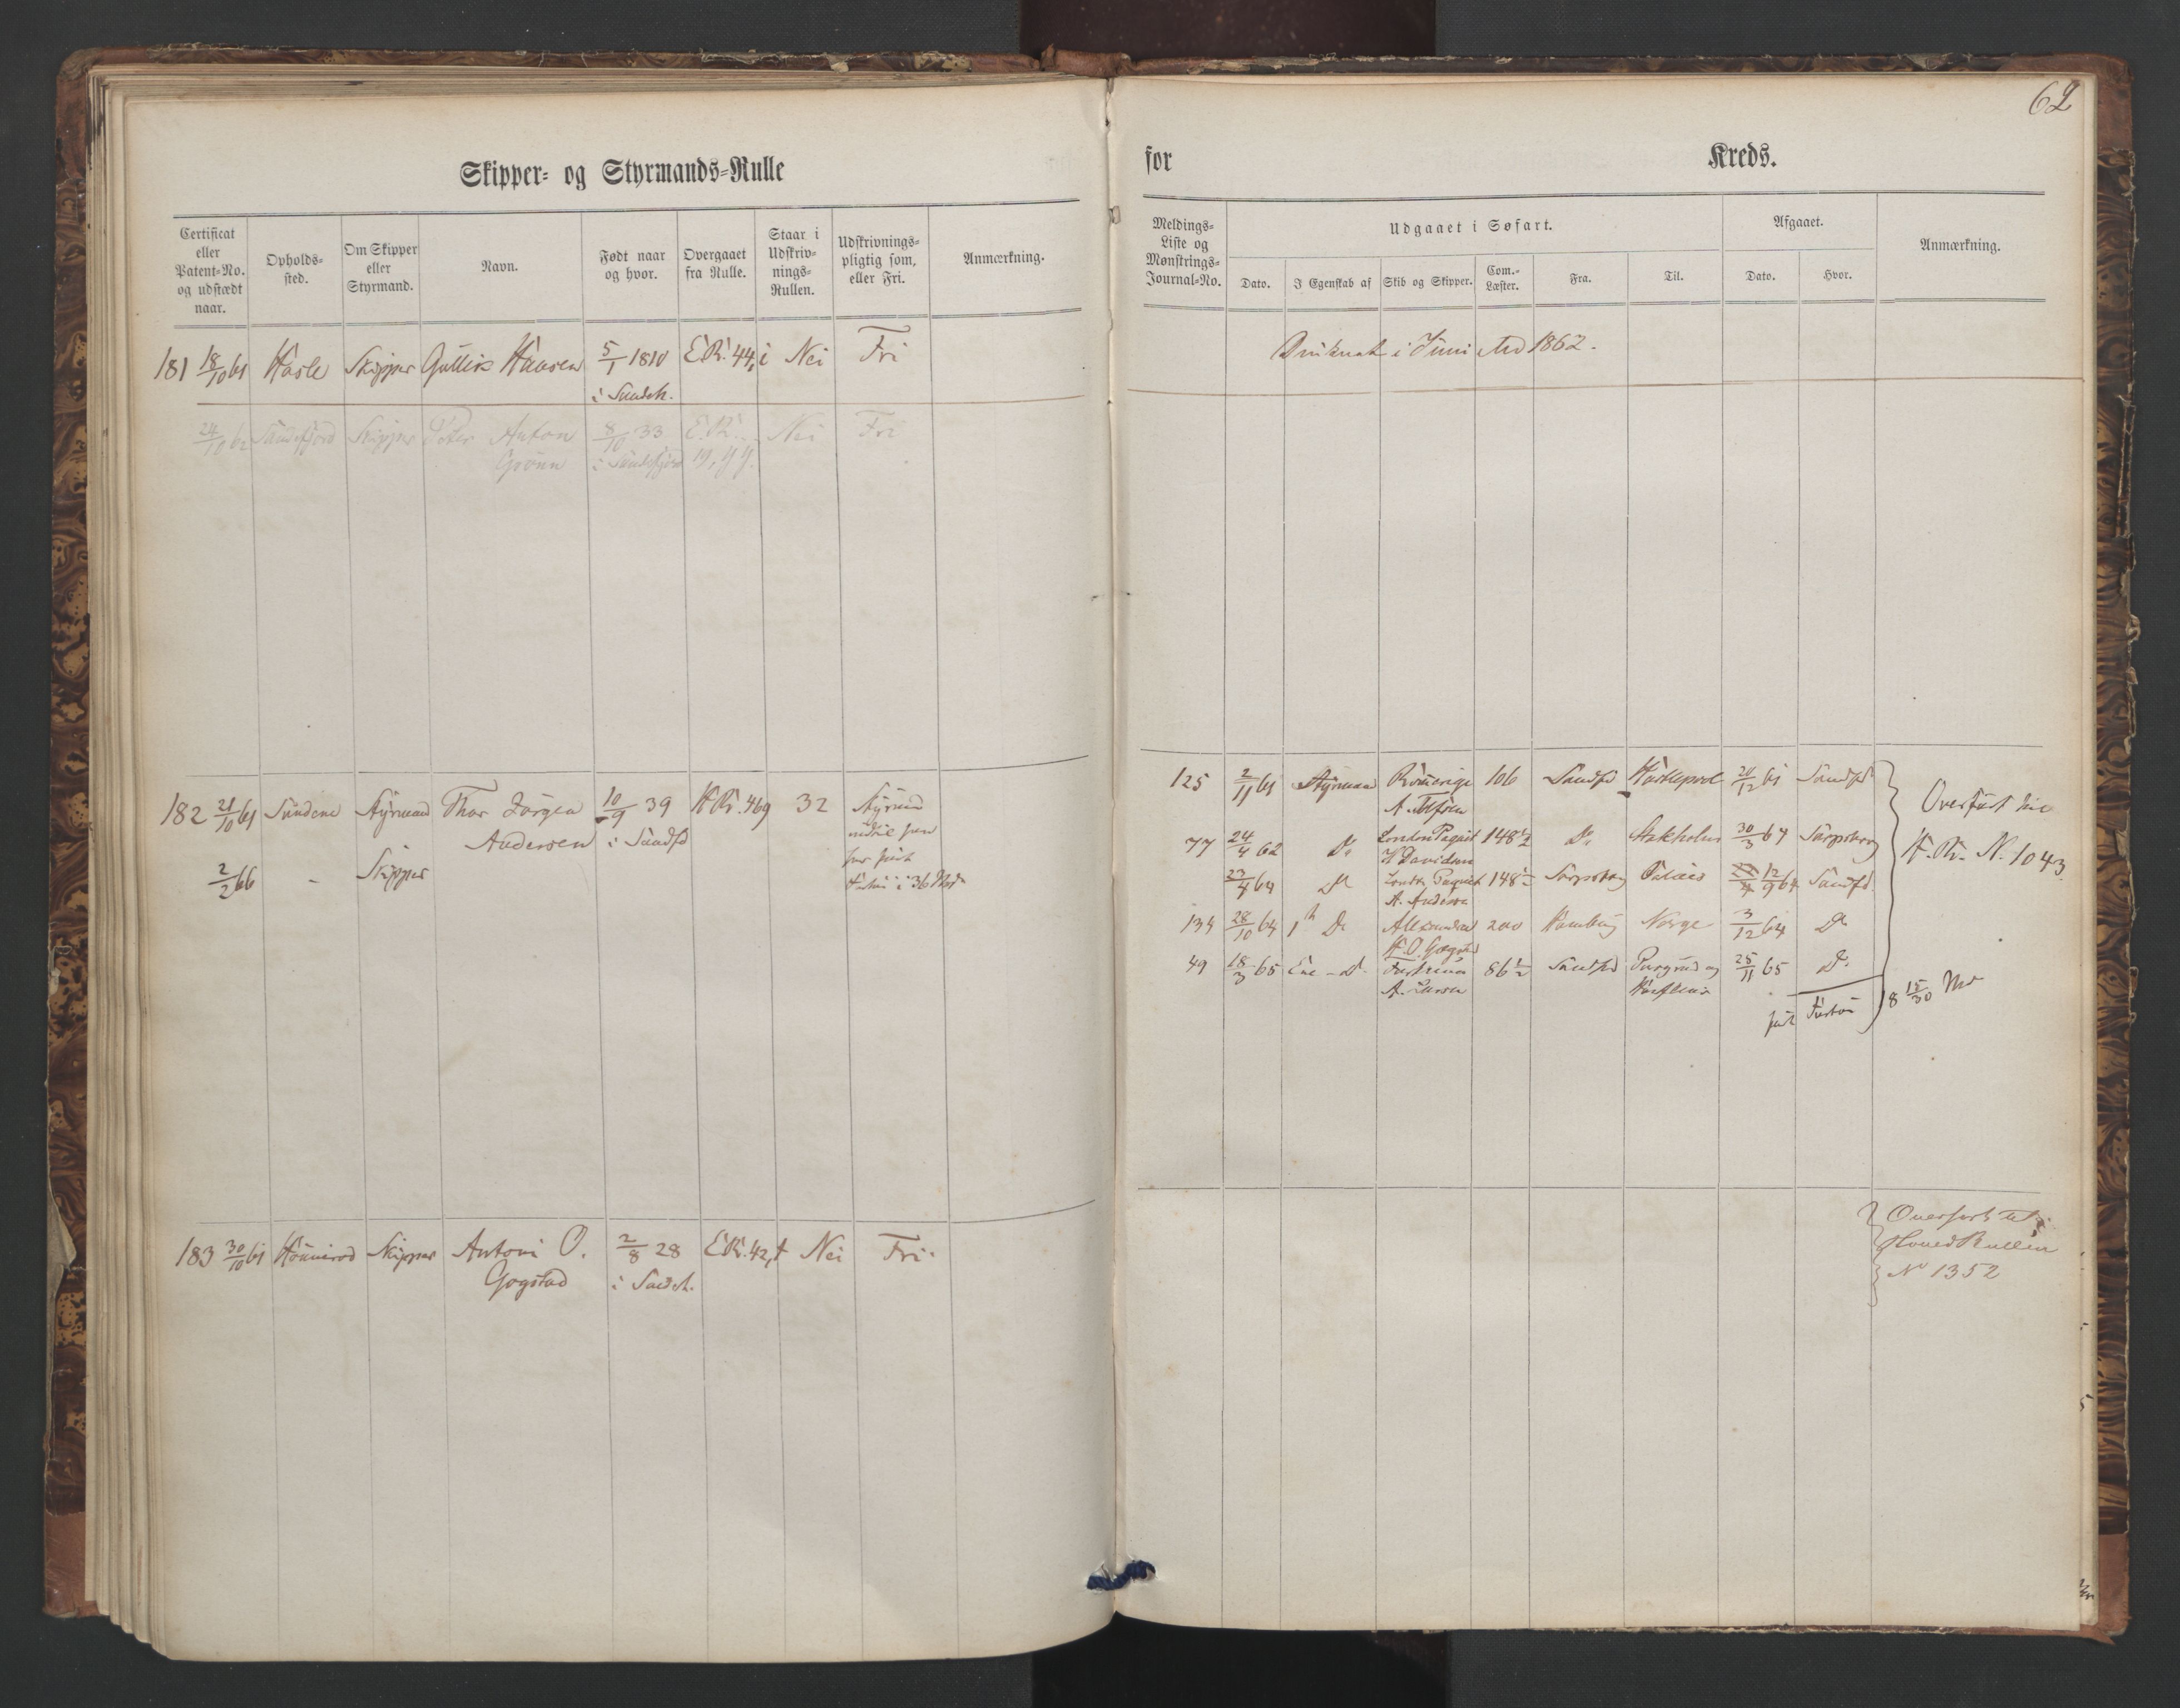 62
Skipper- og Styrmands-Rulle
for
Kreds.
Certificat eller Patent-No. og udstædt naar.
Opholds-sted.
Om Skipper eller Styrmand.
Navn.
Født naar og hvor.
Overgaaet fra Rulle.
Staar i Udskriv-nings-Rullen.
Udskrivnings-pligtig som, eller Fri.
Anmærkning.
Meldings-Liste og Mønstrings-Journal-No.
Udgaaet i Søfart.
Dato.
I Egenskab af
Skib og Skipper.
Com.-Læster.
Fra.
Til.
Afgaaet.
Dato.
Hvor.
Anmærkning.
181 18/10 61 Hasle Skipper Gullik Hansen 5/1 1810 E.R. 44, i Nei Fri
i Sandeh.
Druknet i Juni Md 1862.
24/10 62 Sandefjord Skipper Peter Anton 8/10 33 E.R. Nei Fri
Grønn i Sandefjord
182 21/10 61 Sundene Styrmand Thor Jørgen 10/9 39 H.R. 469 32 Styrmd
Andersen i Sandfd
2/2 66 - Skipper
i 36 Mdr
125 2/11 61 Styrmand Romerige 106 Sandfd Hartlepool 20/12 61 Sandfd
77 24/4 62 Do London Paquet 148 1/2 Do Stokholm 30/3 64 Sarpsborg
H Davidsen
23/4 64 Do London Paquet 148 1/2 Sarpsborg Calais 12/9 64 Sandfd
A. Andersen
134 28/10 64 1ste Do Alexandra 200 Hamburg Norge 3/12 64 Do
H. O. Gogstad
49 18/3 65 Ene - Do 86 1/2 Sandfd Porsgrund og 25/11 65 Do
A. Larsen
Overført til
H. R. N. 1043
18 15/30 Md
183 30/10 61 Skipper Antoni O. 2/8 28 E.R. 42, t Nei Fri
Gogstad i Sandeh.
Overført til
Hoved Rullen
No 1352